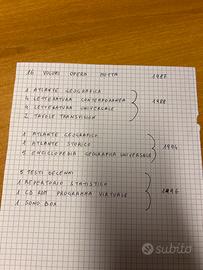 16 VOLUMI OPERA MOTTA 1987
1 ATLANTE GEOGRAFICA
4 LETTERATURA CONTEMPORANEA
4 LETTERATURA UNIVERSALE
2 TAVOLE TRANSVISION
1988
1 ATLANTE GEOGRAFICO
1 ATLANTE STORICO
5 ENCICLOPEDIA GEOGRAFICA UNIVERSALE
1994
5 TESTI DECENNI
1 REPERTORIO STATISTICO
1 CD ROM PROGRAMMA VIRTUALE
1 SOND BOX
1996
subito